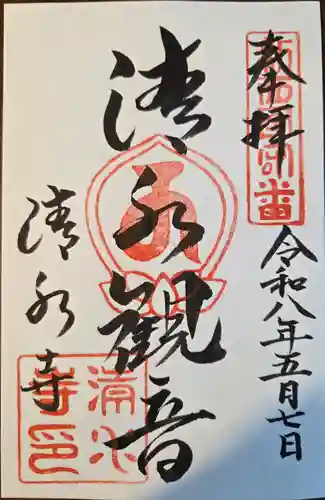 奉拝
令和八年五月七日
清水観音
清水寺
清水寺印